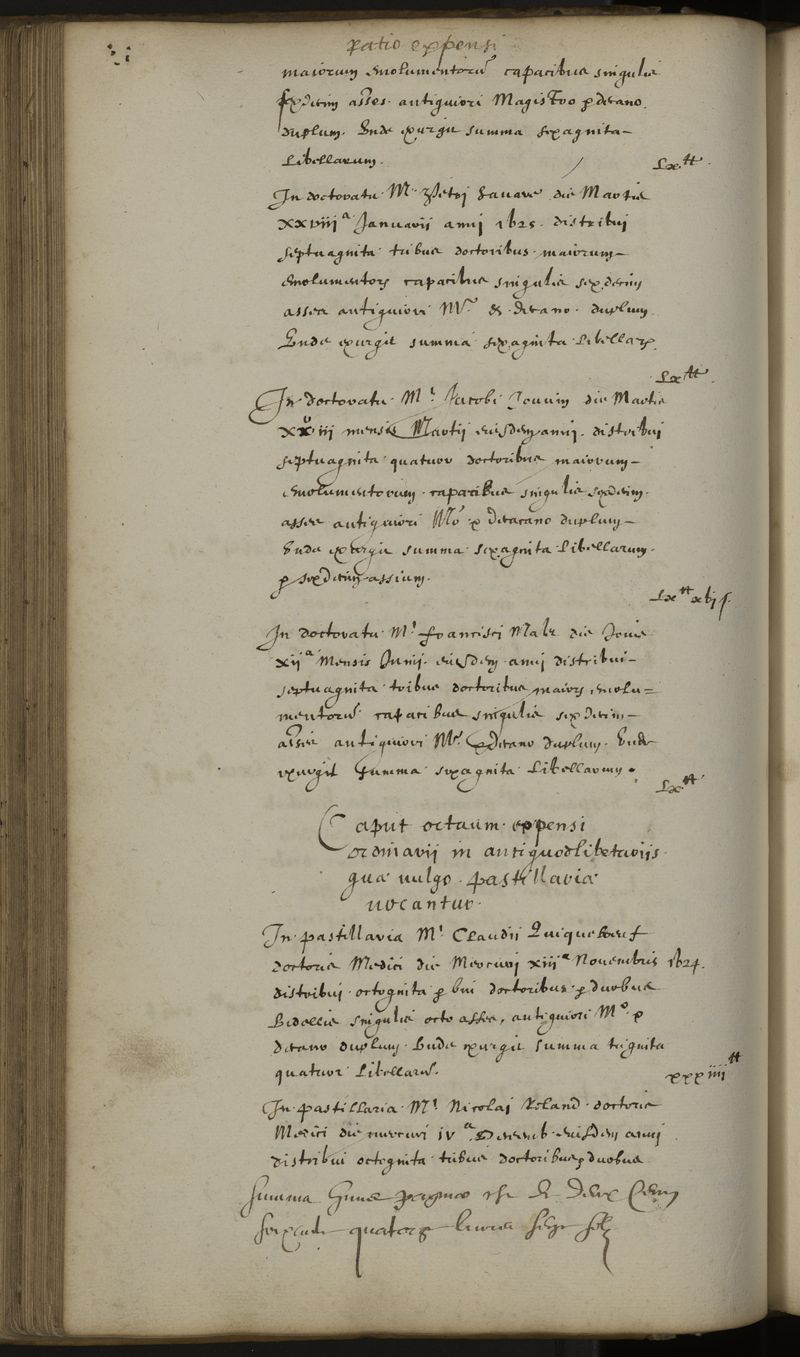 Ratio expensi
maiorum emolumentorũ capacibus singulis
sexdecim asses antiquiori Magistro & decano
duplum. Unde exurgit summa sexaginta
Libellarum.
Lx ᵗᵗ
In doctoratu M.ʳ Petri Yavare die Martis
xxviiiᵃ Januarii anni 1625. distribui
septuaginta tribus doctoribus maiorum
emolumentorꝫ capacibus singulis sexdecim
asses antiquiori Mʳ. & decano duplum.
Unde exurgit summa sexaginta Libellarꝫ.
Lx ᵗᵗ
In doctoratu M.ⁱ Jacobi Jouuin die Martis
xviii mensis Martii eiusdem anni. distribui
septuaginta quatuor doctoribus maiorum
emolumentorum capacibus singulis sexdecim
asses antiquiori Mº & decano duplum
Unde exurgit summa sexaginta Libellarum
& sexdecim assium.
Lx ᵗᵗ xvj ſ.
In doctoratu M.ⁱ Francisci Male die Jovis
xijᵃ Mensis Junij eiusdem anni distribui
septuaginta tribus doctoribus maiorꝫ emolu=
mentorũ capacibus singulis sexdecim
asses antiquiori Mʳ. & decano duplum. Unde
exurgit summa sexaginta Libellarum.
Lx ᵗᵗ
Caput octauum expensi
ordinarii in antiquodlibetariis
quæ vulgo pastillariæ
uocantur.
In pastillaria M.ⁱ Claudii Quiqueboeuf
doctoris Medici die Mercurj xiiiᵃ Nouembris 1624.
distribui octoginta & bini doctoribus & duobus
Bedellis singulis octo asses, antiquiori Mº &
decano duplum. Unde exurgit summa triginta
quatuor Libellarũ.
xxxiiii ᵗᵗ
In pastillaria M.ⁱ Nicolaj Roland doctoris
Medici die mercuri ivᵃ Decemb. eiusdem anni
distribui octoginta tribus doctoribus & duobus
Summa huius paginæ est de deux Cens
quatorze livres seize solz